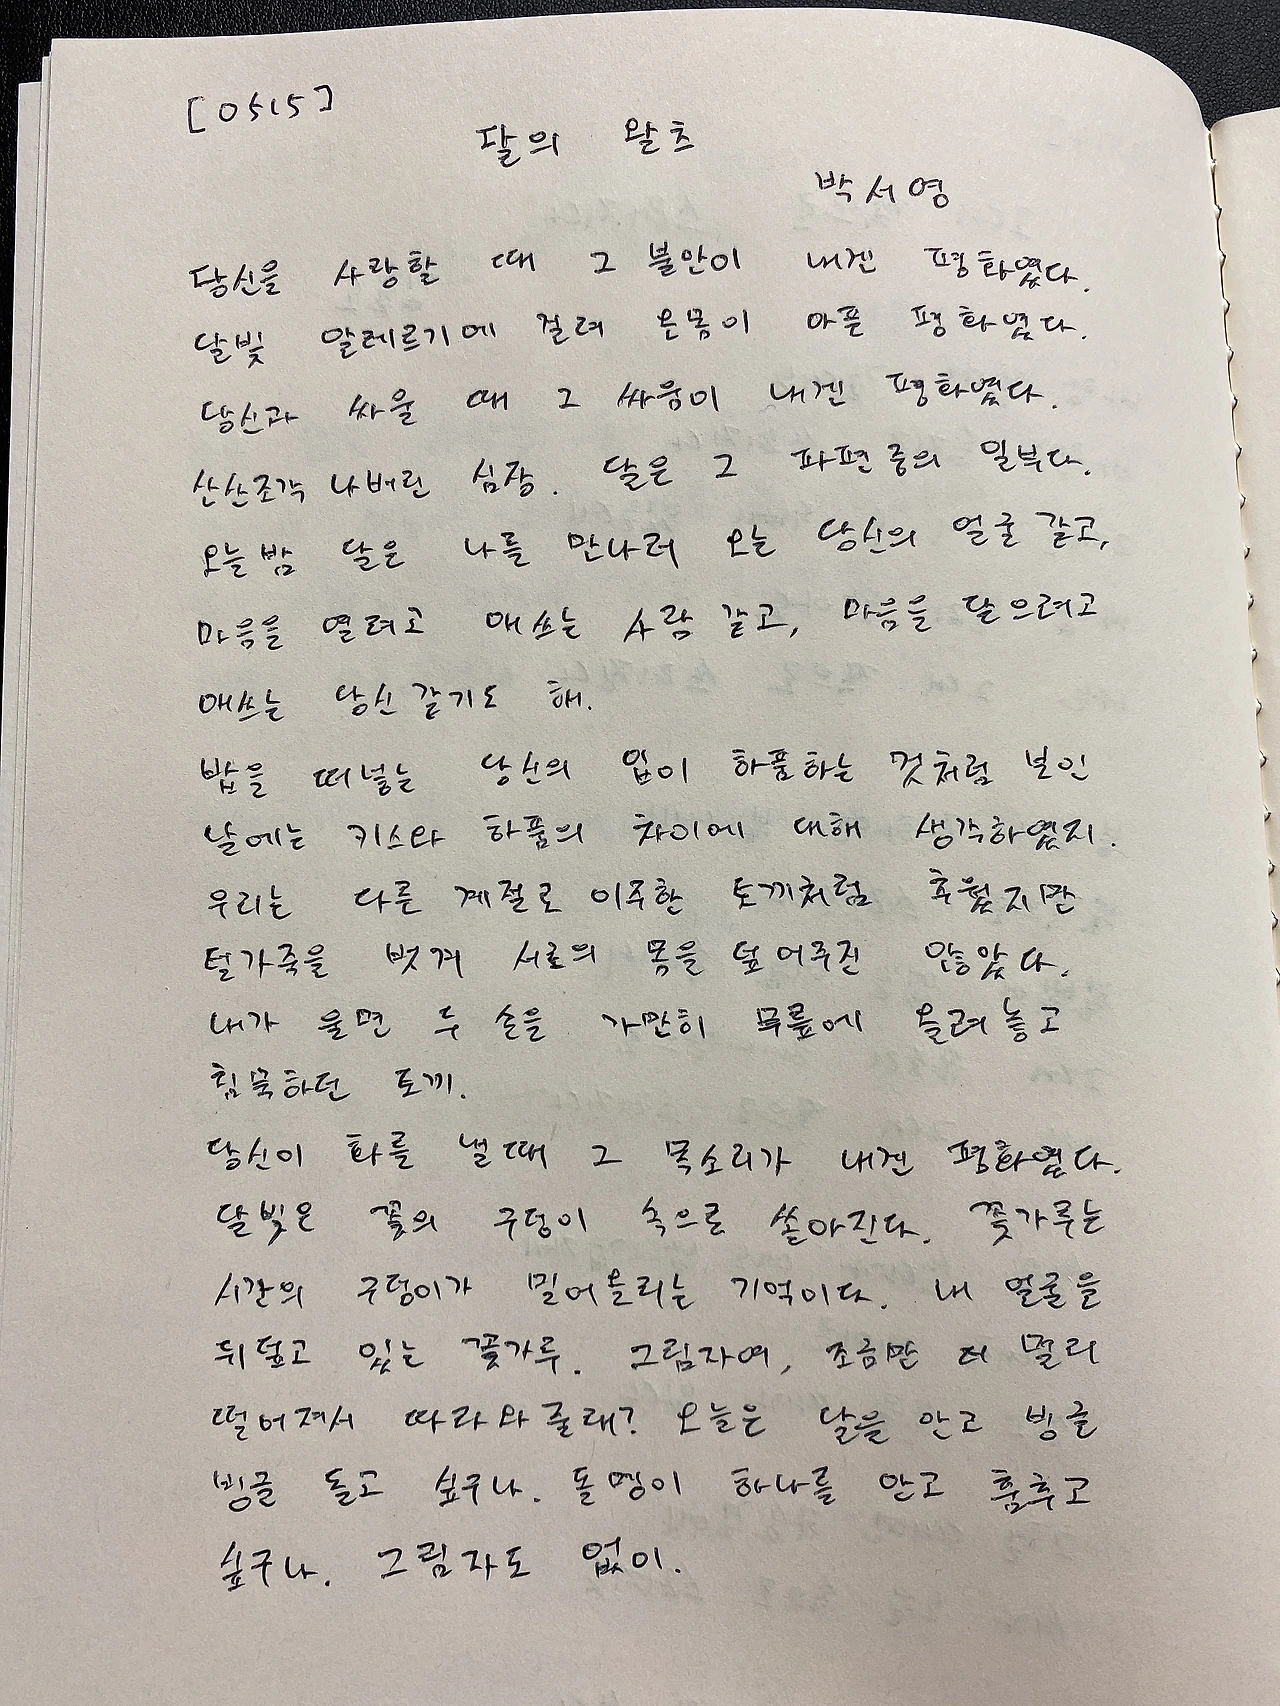 [0515]
달의 왈츠
박서영
당신을 사랑할 때 그 불안이 내겐 평화였다.
달빛 알레르기에 걸려 온몸이 아픈 평화였다.
당신과 싸울 때 그 싸움이 내겐 평화였다.
산산조각 나버린 심장. 달은 그 파편 중의 일부다.
오늘밤 달은 나를 만나러 오는 당신의 얼굴 같고,
마음을 열려고 애쓰는 사람 같고, 마음을 닫으려고
애쓰는 당신 같기도 해.
밥을 떠넣는 당신의 입이 하품하는 것처럼 보인
날에는 키스와 하품의 차이에 대해 생각하였지.
우리는 다른 계절로 이주한 토끼처럼 추웠지만
털가죽을 벗겨 서로의 몸을 덮어주진 않았다.
내가 울면 두 손을 가만히 무릎에 올려놓고
침묵하던 토끼.
당신이 화를 낼 때 그 목소리가 내겐 평화였다.
달빛은 꽃의 구덩이 속으로 쏟아진다. 꽃가루는
시간의 구덩이가 밀어올리는 기억이다. 내 얼굴을
뒤덮고 있는 꽃가루. 그림자여, 조금만 더 멀리
떨어져서 따라와줄래? 오늘은 달을 안고 빙글
빙글 돌고 싶구나. 돌멩이 하나를 안고 춤추고
싶구나. 그림자도 없이.